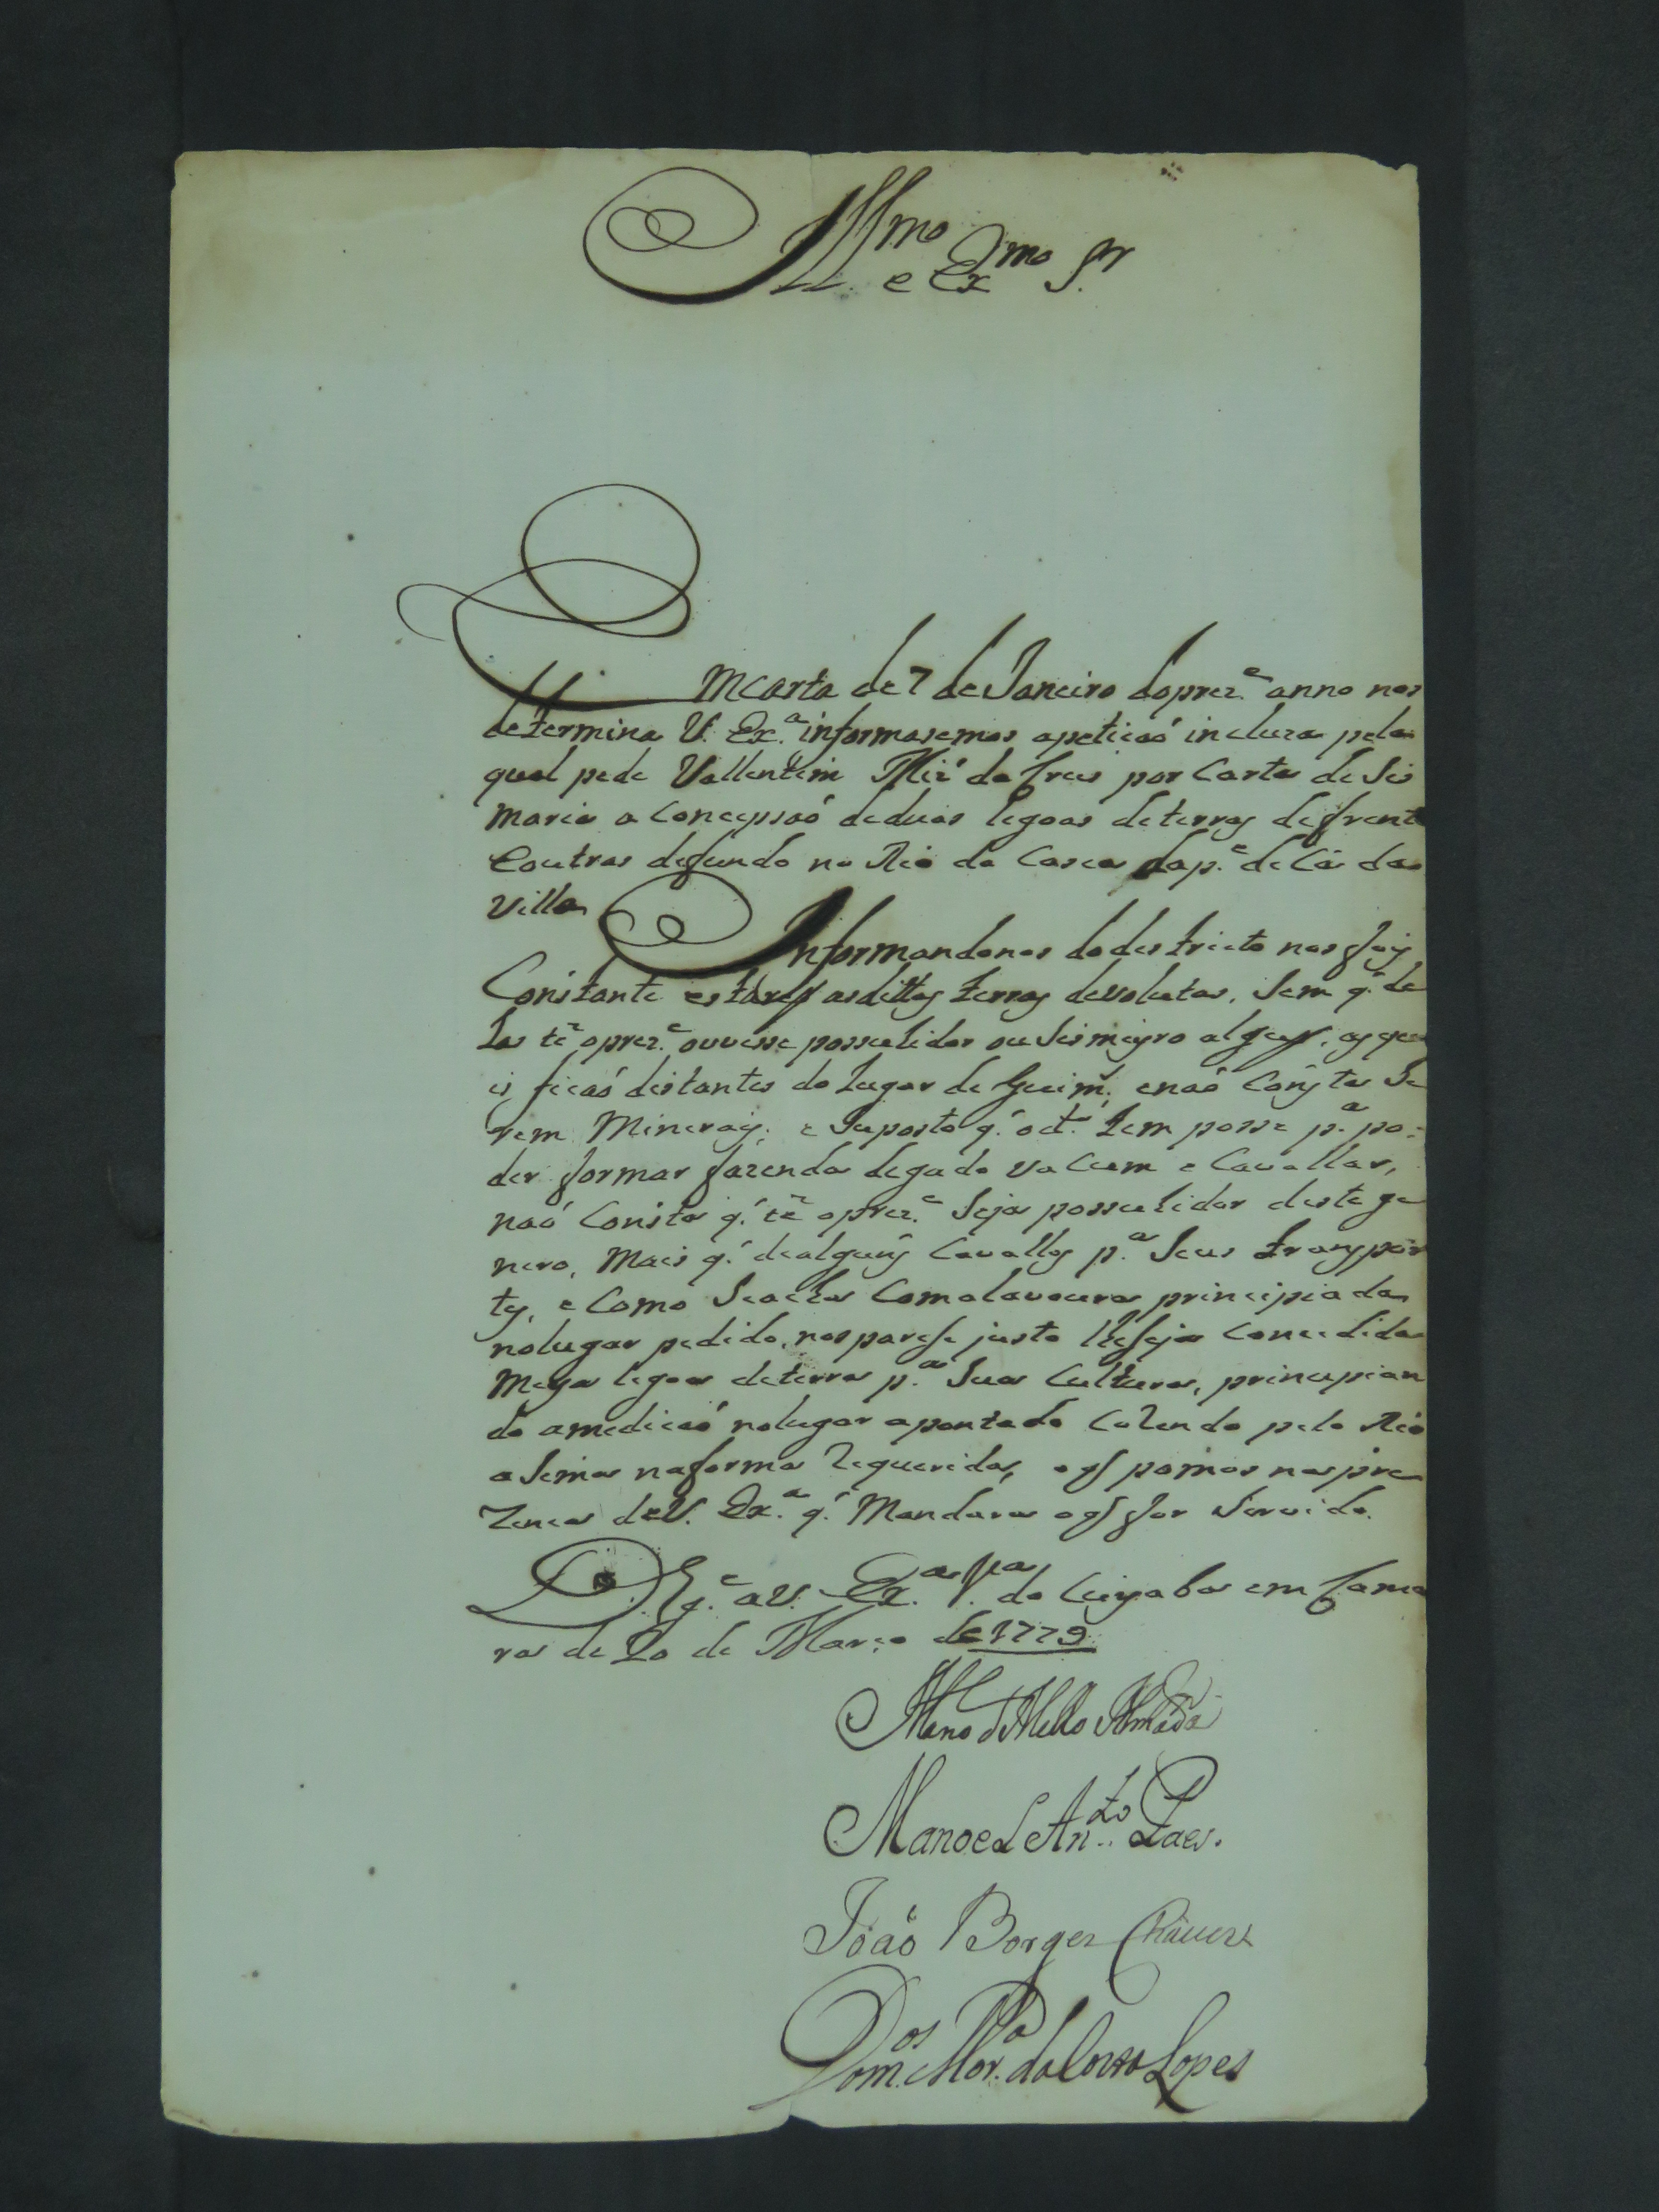 Illmo e Exmo Sr
Em carta de 7 de Janeiro do prez.e anno nos
determina V. Ex.a informasemos a petiçaó incluza pela
qual pede Vallentim Miz' da Crus por Carta de Sis
maria a Concepssaó de duas legoas de terras de frente
e outras de fundo no Rio da Casca da p.e de Cá da
Villa
Informandonos do destricto nos foy
Constante estarem as dittas terras devolutas, Sem q' de
las té o prez.e ouvesse possuhidor ou Sismeyro algum, as qua
is ficaó distantes do Lugar de Guim.es e naó Consta Se
rem Mineraes; e Suposto q' o d.o tem posse p.a po=
der formar fazenda de gado vaCum e Cavallar,
naó Consta q' té o prez.e Seja possuhidor deste ge
nero, Mais q' de alguns Cavallos p.a Seus transpor
tes, e Como Se acha Com a lavoura principiada
no lugar pedido, nos parese justo lhe seja Concedida
Meya legoa de terra p.a Sua Cultura, principian
do a mediçaó no lugar apontado Correndo pelo Rio
a Sima na forma requerida, o q' pomos na pre
zença de V. Ex.a q' Mandará o q' for Servido.
D. G.e a V. Ex.a V.a do Cuyaba em Cama
ra de 20 de Março de 1779
Mano d Mello Almada
Manoel An.to Paes.
Joaó Borges Chaues
Dom.os Mor.a da Costa Lopes